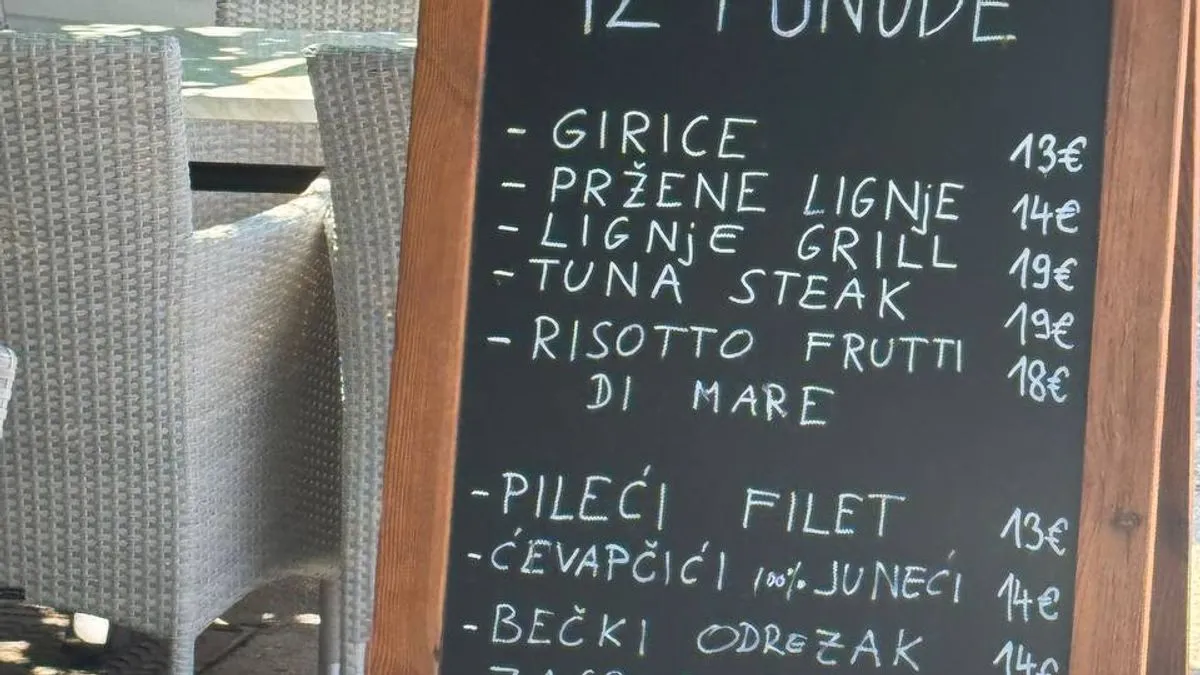 IZ PONUDE
- GIRICE 13€
- PRŽENE LIGNjE 14€
- LIGNjE GRILL 19€
- TUNA STEAK 19€
- RISOTTO FRUTTI 18€
DI MARE
- PILEĆI FILET 13€
- ĆEVAPČIĆI 100% JUNEĆI 14€
- BEČKI ODREZAK 14€